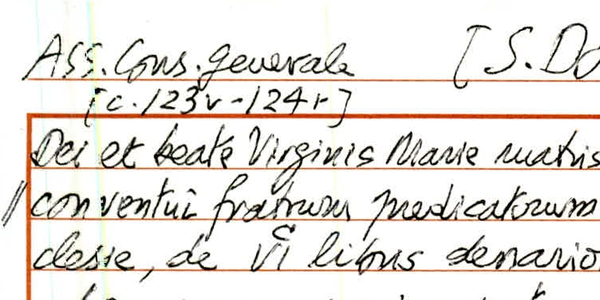 Ass. Cons. generale [S. Do
[c. 123v-124r]
Dei et beate Virginis Marie matris
conventui fratrum predicatorum
de VI libris denario